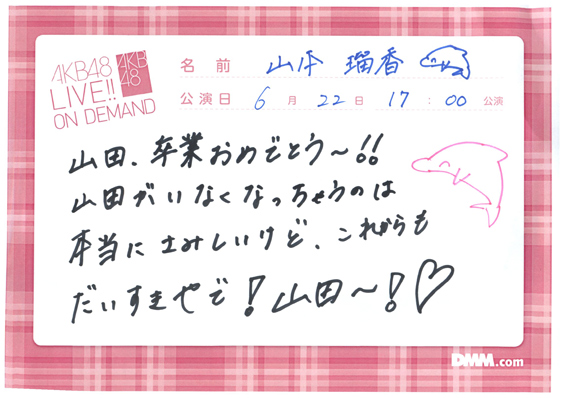 AKB48
LIVE!!
ON DEMAND
AKB
48
名前 山本 瑠香
公演日 6月22日 17:00 公演
山田、卒業おめでとう〜!!
山田がいなくなっちゃうのは
本当にさみしいけど、これからも
だいすきやで!山田〜!♡
DMM.com